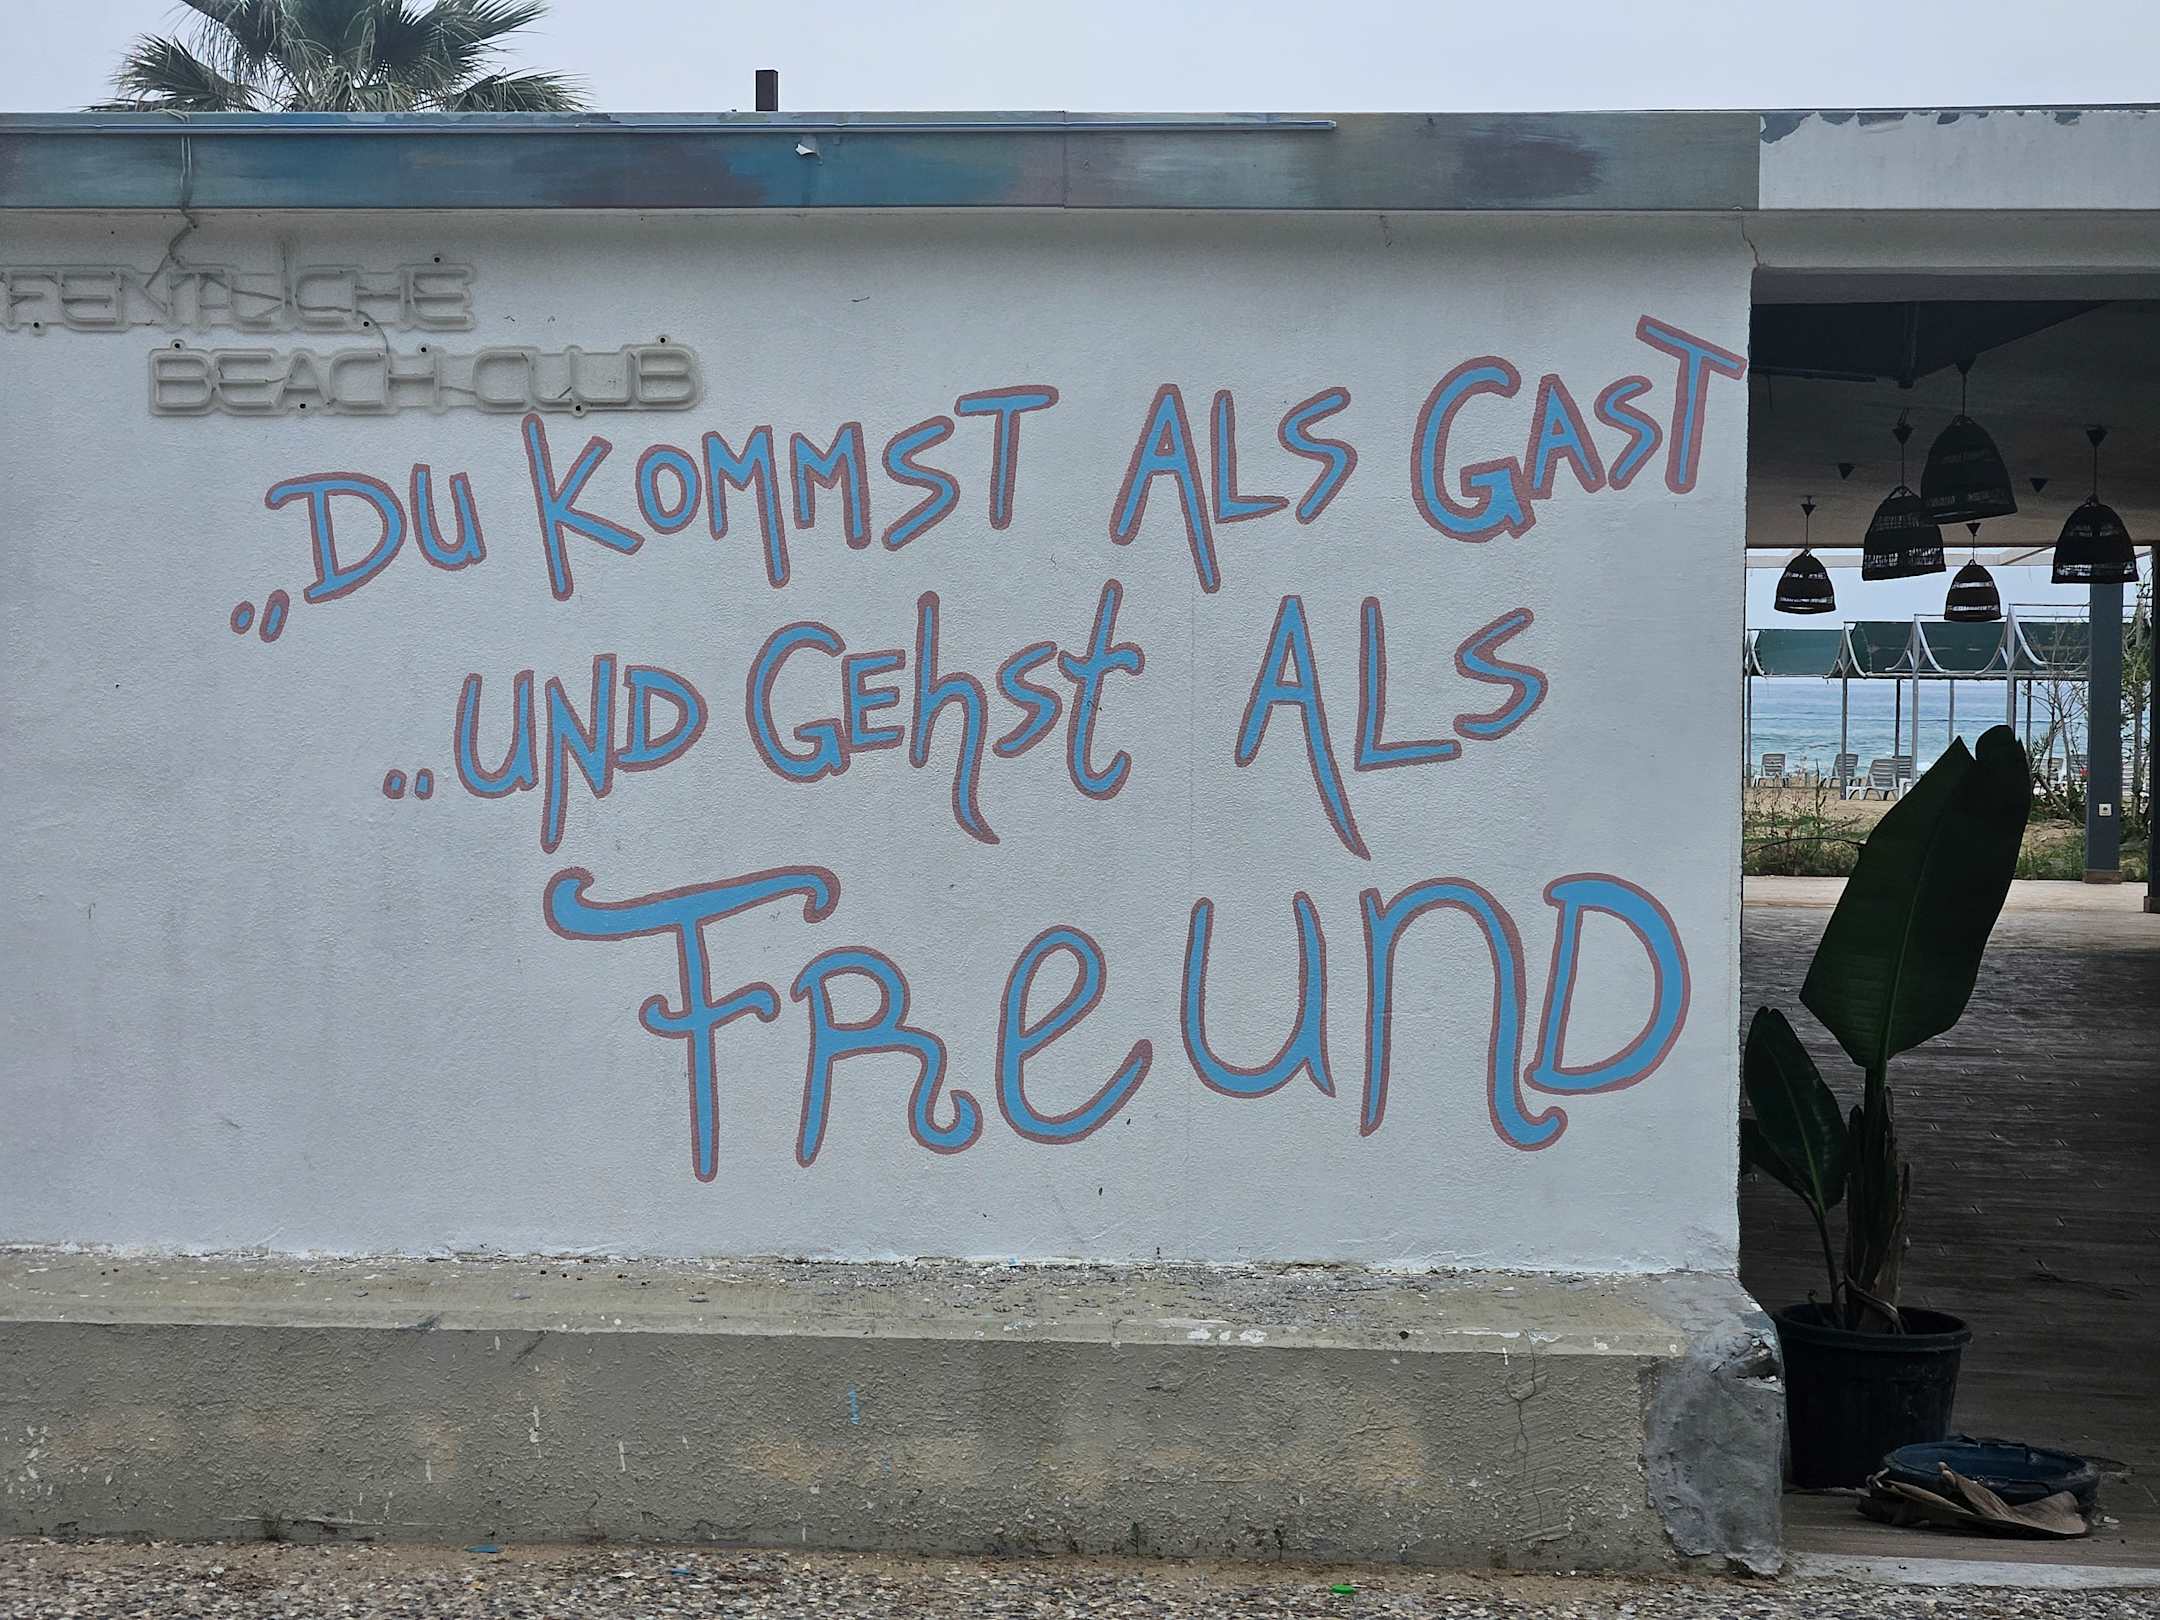 BEACH CLUB
„DU KOMMST ALS GAST
„UND GEhST ALS
FReUnD